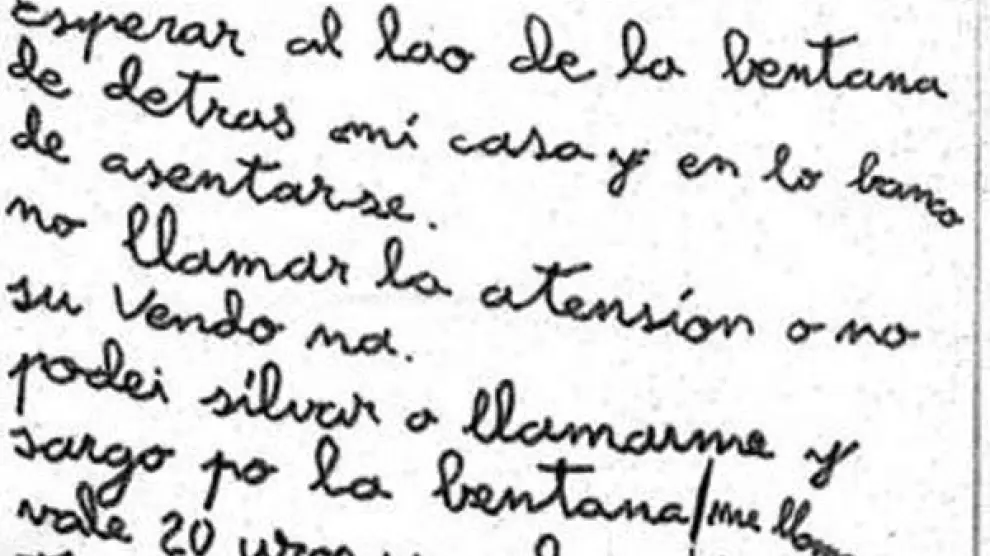 Esperar al lao de la bentana
de detras mi casa y en lo banco
de asentarse.
no llamar la atensíon o no
su Vendo na.
podei sílvar o llamarme y
sargo po la bentana/me llam
vale 20 uros